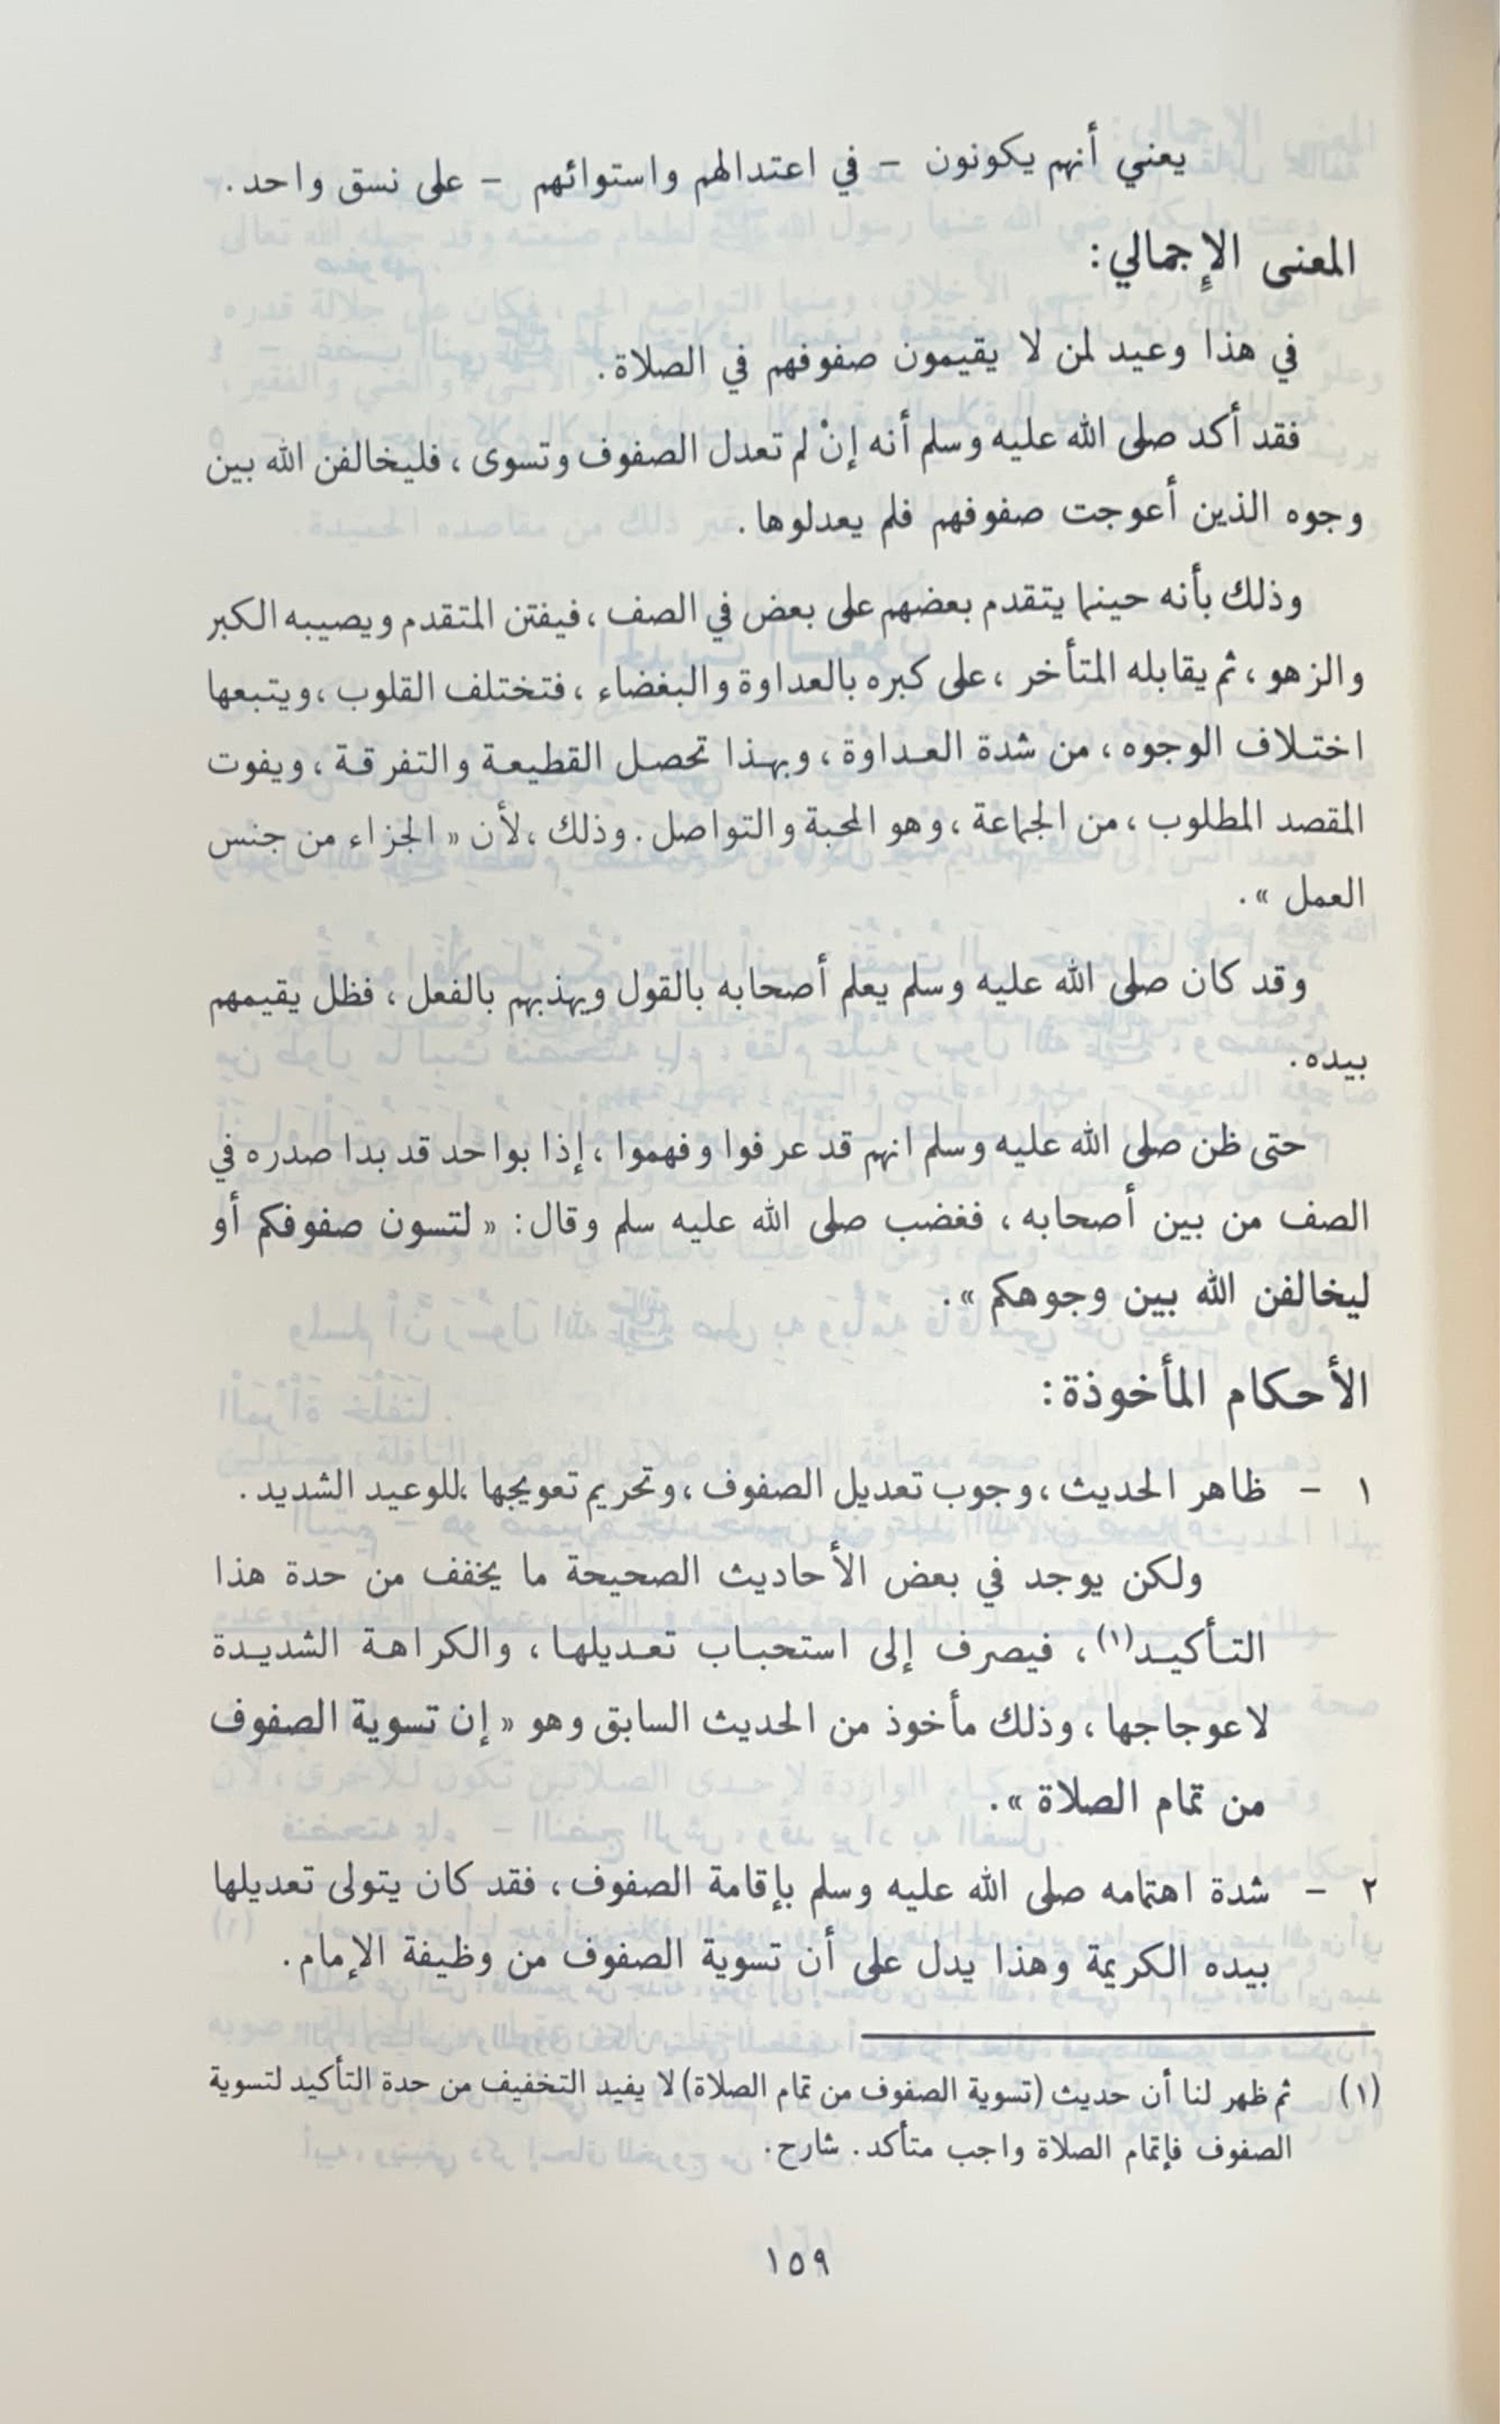 يعني أنهم يكونون - في اعتدالهم واستوائهم - على نسق واحد.
المعنى الإِجمالي:
في هذا وعيد لمن لا يقيمون صفوفهم في الصلاة.
فقد أكد صلى الله عليه وسلم أنه إنْ لم تعدل الصفوف وتسوى، فليخالفن الله بين
وجوه الذين أعوجت صفوفهم فلم يعدلوها.
وذلك بأنه حينما يتقدم بعضهم على بعض في الصف، فيفتن المتقدم ويصيبه الكبر
والزهو، ثم يقابله المتأخر، على كبره بالعداوة والبغضاء، فتختلف القلوب، ويتبعها
اختلاف الوجوه، من شدة العداوة، وبهذا تحصل القطيعة والتفرقة، ويفوت
المقصد المطلوب، من الجماعة، وهو المحبة والتواصل. وذلك، لأن « الجزاء من جنس
العمل ».
وقد كان صلى الله عليه وسلم يعلم أصحابه بالقول ويهذبهم بالفعل، فظل يقيمهم
بيده.
حتى ظن صلى الله عليه وسلم انهم قد عرفوا وفهموا، إذا بواحد قد بدا صدره في
الصف من بين أصحابه، فغضب صلى الله عليه سلم وقال: « لتسون صفوفكم أو
ليخالفن الله بين وجوهكم ».
الأحكام المأخوذة:
١ - ظاهر الحديث، وجوب تعديل الصفوف، وتحريم تعويجها، للوعيد الشديد.
ولكن يوجد في بعض الأحاديث الصحيحة ما يخفف من حدة هذا
التأكيد(١)، فيصرف إلى استحباب تعديلها، والكراهة الشديدة
لاعوجاجها، وذلك مأخوذ من الحديث السابق وهو « إن تسوية الصفوف
من تمام الصلاة ».
٢ - شدة اهتمامه صلى الله عليه وسلم بإقامة الصفوف، فقد كان يتولى تعديلها
بيده الكريمة وهذا يدل على أن تسوية الصفوف من وظيفة الإمام.
(١) ثم ظهر لنا أن حديث (تسوية الصفوف من تمام الصلاة) لا يفيد التخفيف من حدة التأكيد لتسوية
الصفوف فإتمام الصلاة واجب متأكد. شارح.
١٥٩